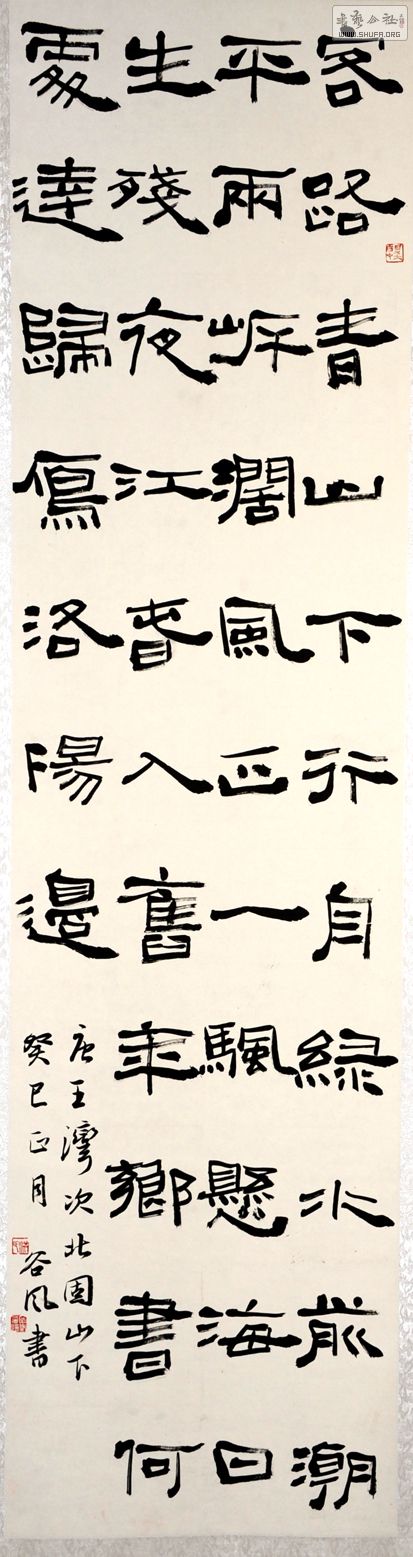 客路青山下行舟綠水前潮
平兩岸濶風正一颿懸海日
生殘夜江春入舊年鄉書何
處達歸鴈洛陽邊
唐王灣次北固山下
癸巳正月 谷风書
书艺公社
WWW.SHUFA.ORG